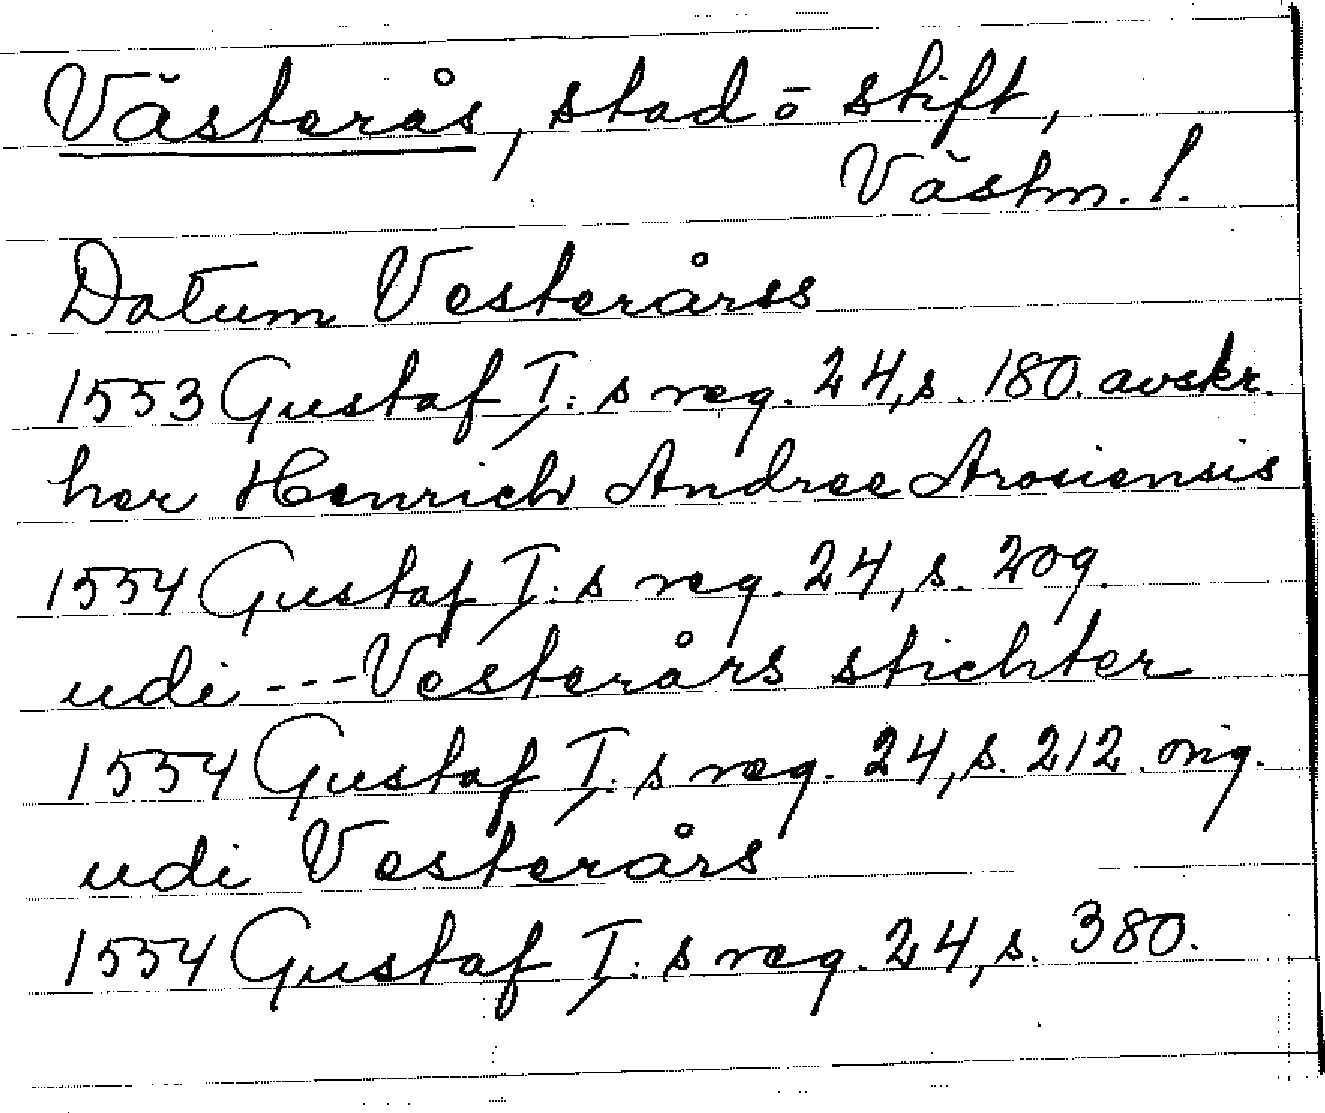 Västerås, stad ō stift,
Västm. l.
Datum Vesterårss
1553 Gustaf I: s reg. 24, s. 180. avskr.
her Henrich Andree Arosiensis
1554 Gustaf I: s reg. 24, s. 209.
udi --- Vesterårs stichter
1554 Gustaf I: s reg. 24, s. 212. orig.
udi Vesterårs
1554 Gustaf I: s reg. 24, s. 380.